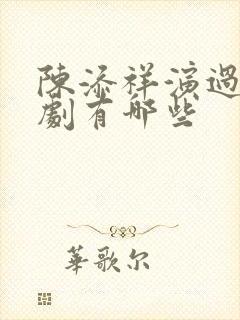 陳添祥演過
劇有哪些
華歌尔